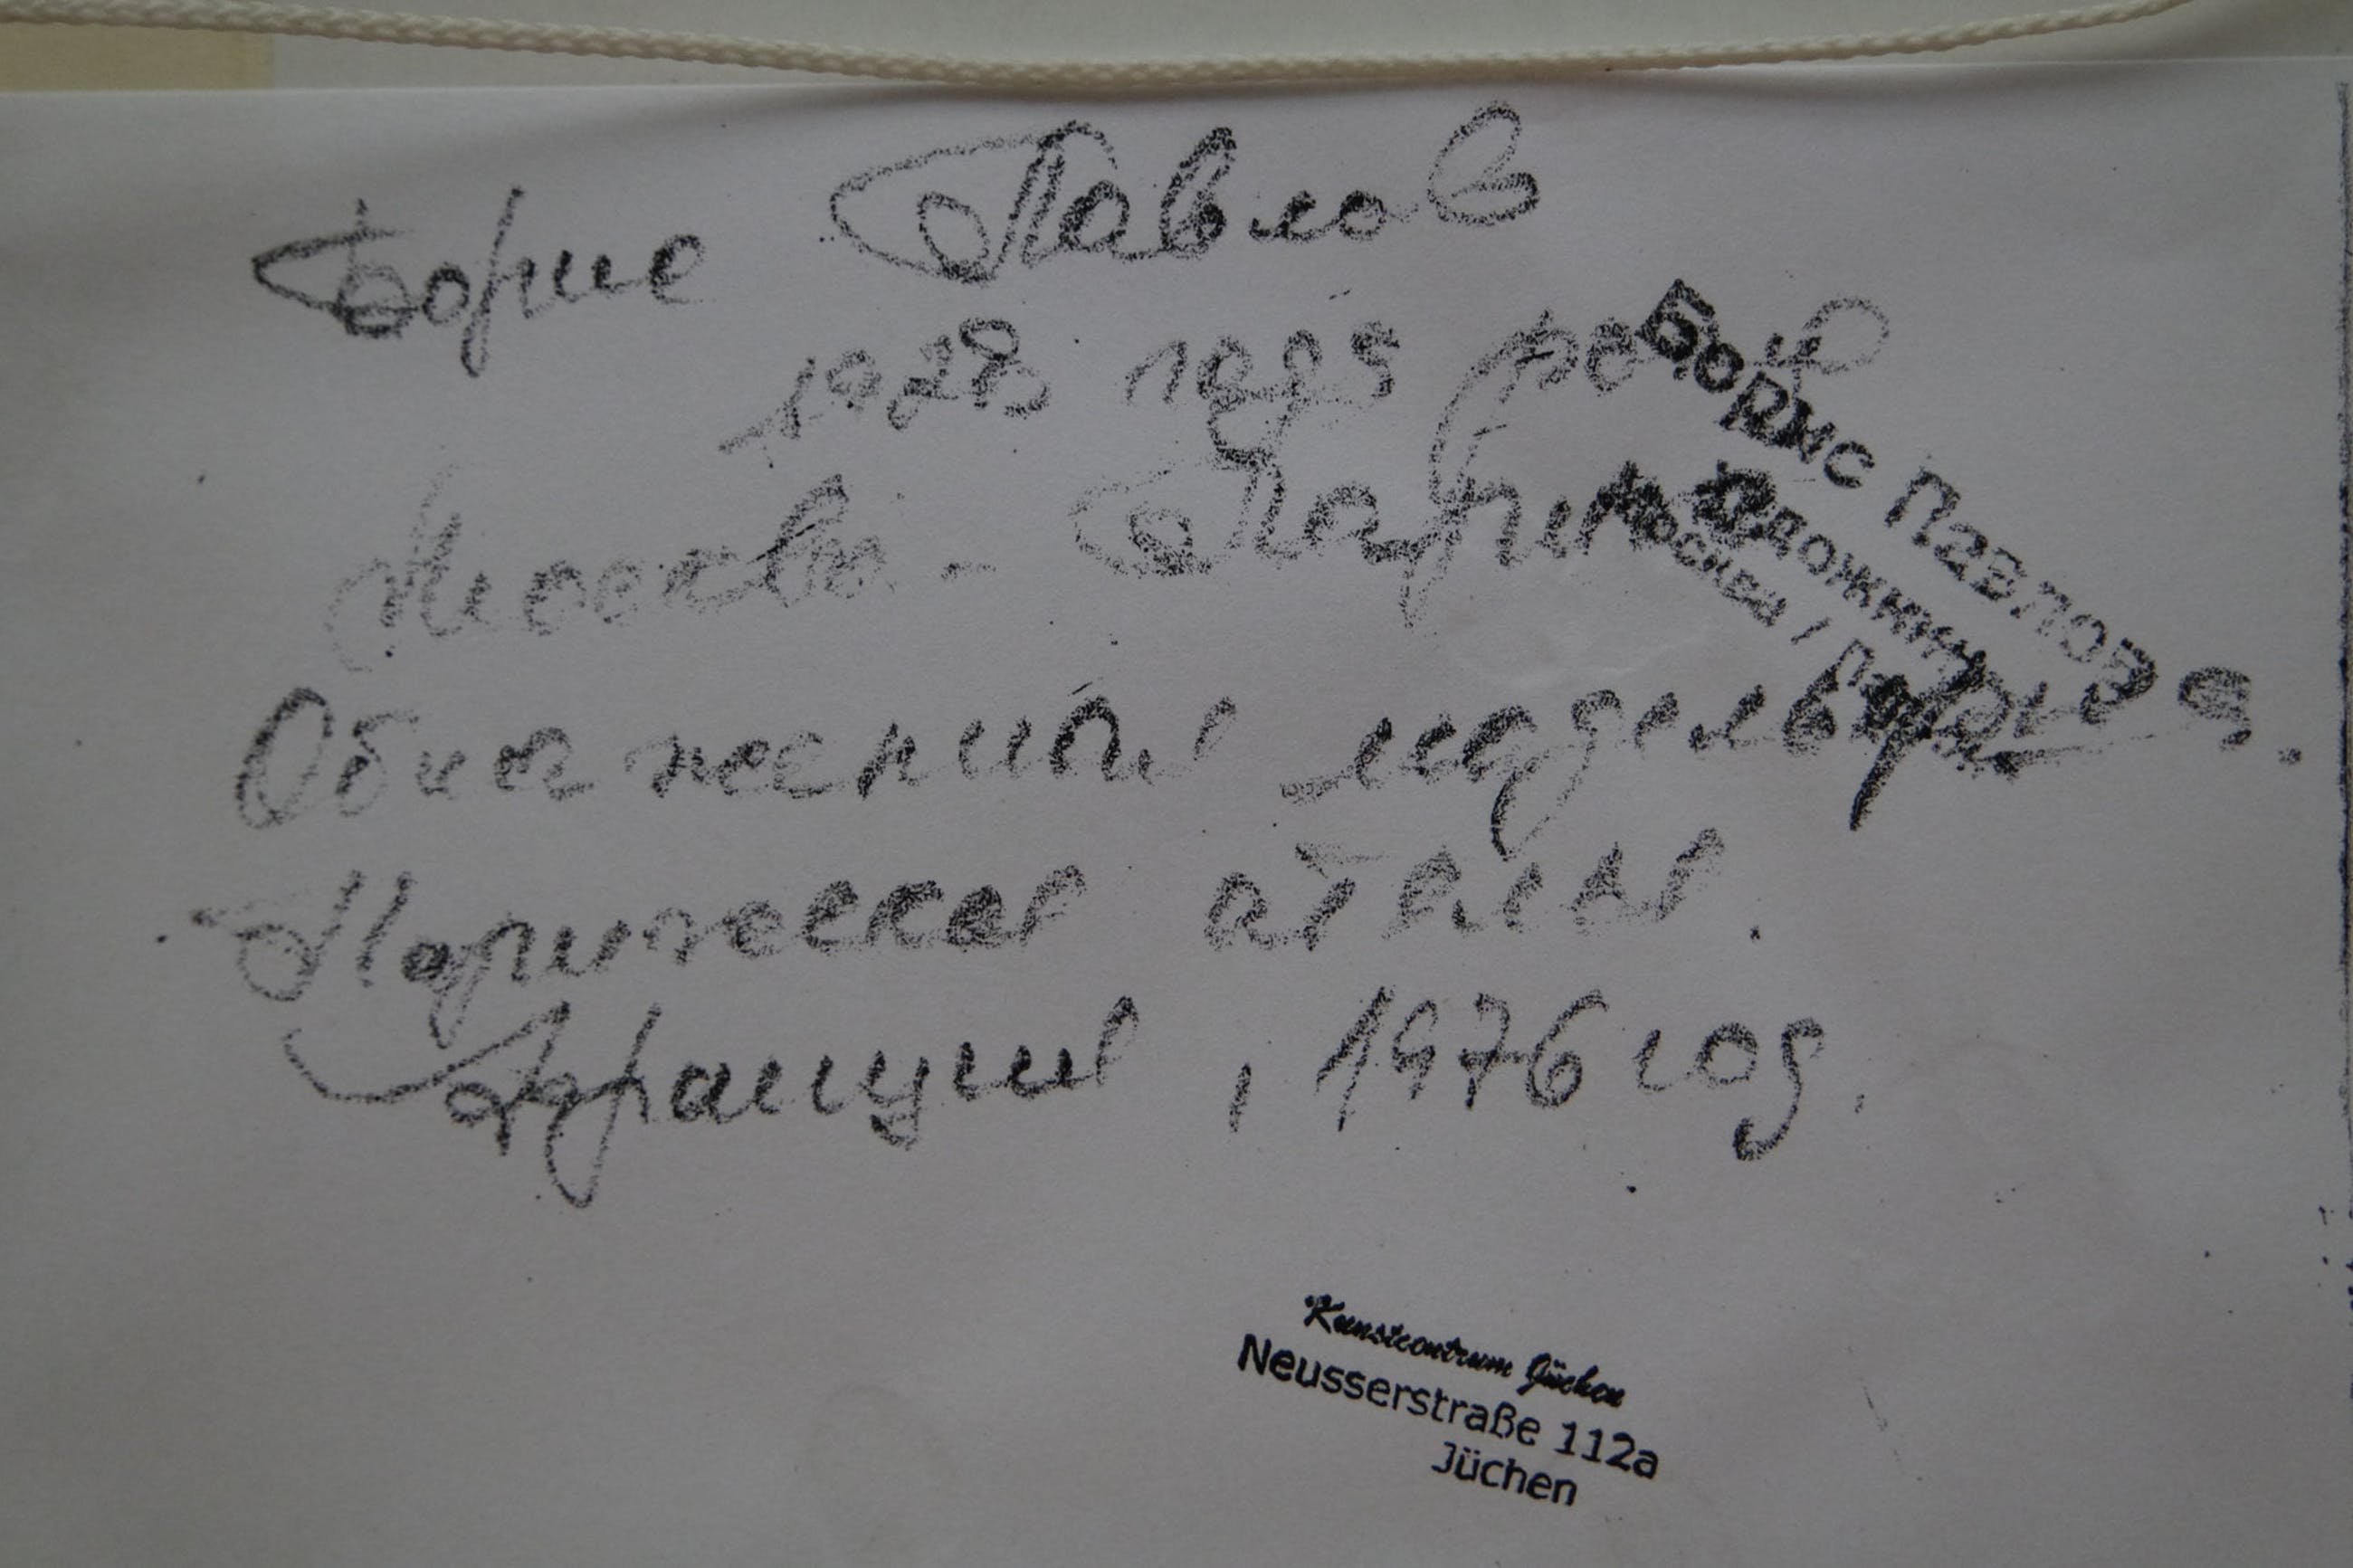 Борис Павлов
1928 года
Москва - Париж
Обнаженные модель
Парижское ателье.
Франция, 1976 год.
Борис Павлов
Художник
Москва / Париж
Kunstcentrum Jüchen
Neusserstraße 112a
Jüchen